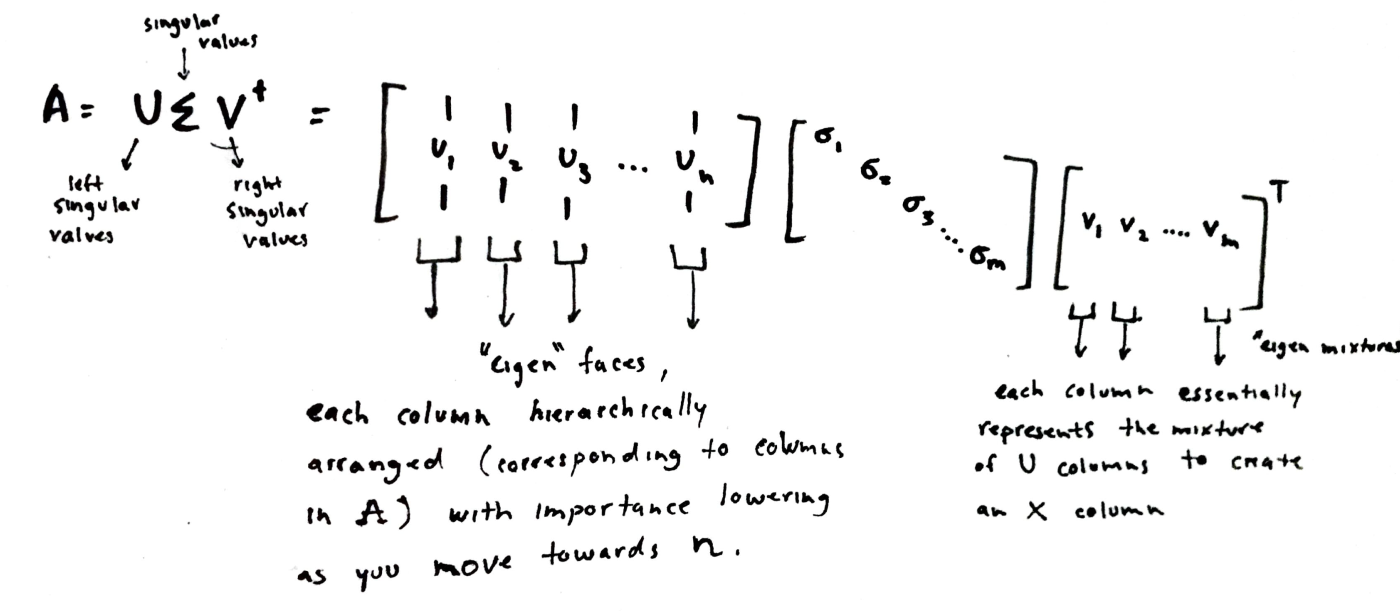 singular
values
A = U Σ V^t = [ | | | | ] [ σ₁ σ₂ σ₃ ... σₘ ] [ v₁ v₂ .... vₘ ]^T
U₁ U₂ U₃ ... Uₙ
left
singular
values
right
singular
values
"eigen" faces,
each column hierarchically
arranged (corresponding to columns
in A) with importance lowering
as you move towards n.
"eigen mixtures
each column essentially
represents the mixture
of U columns to create
an X column